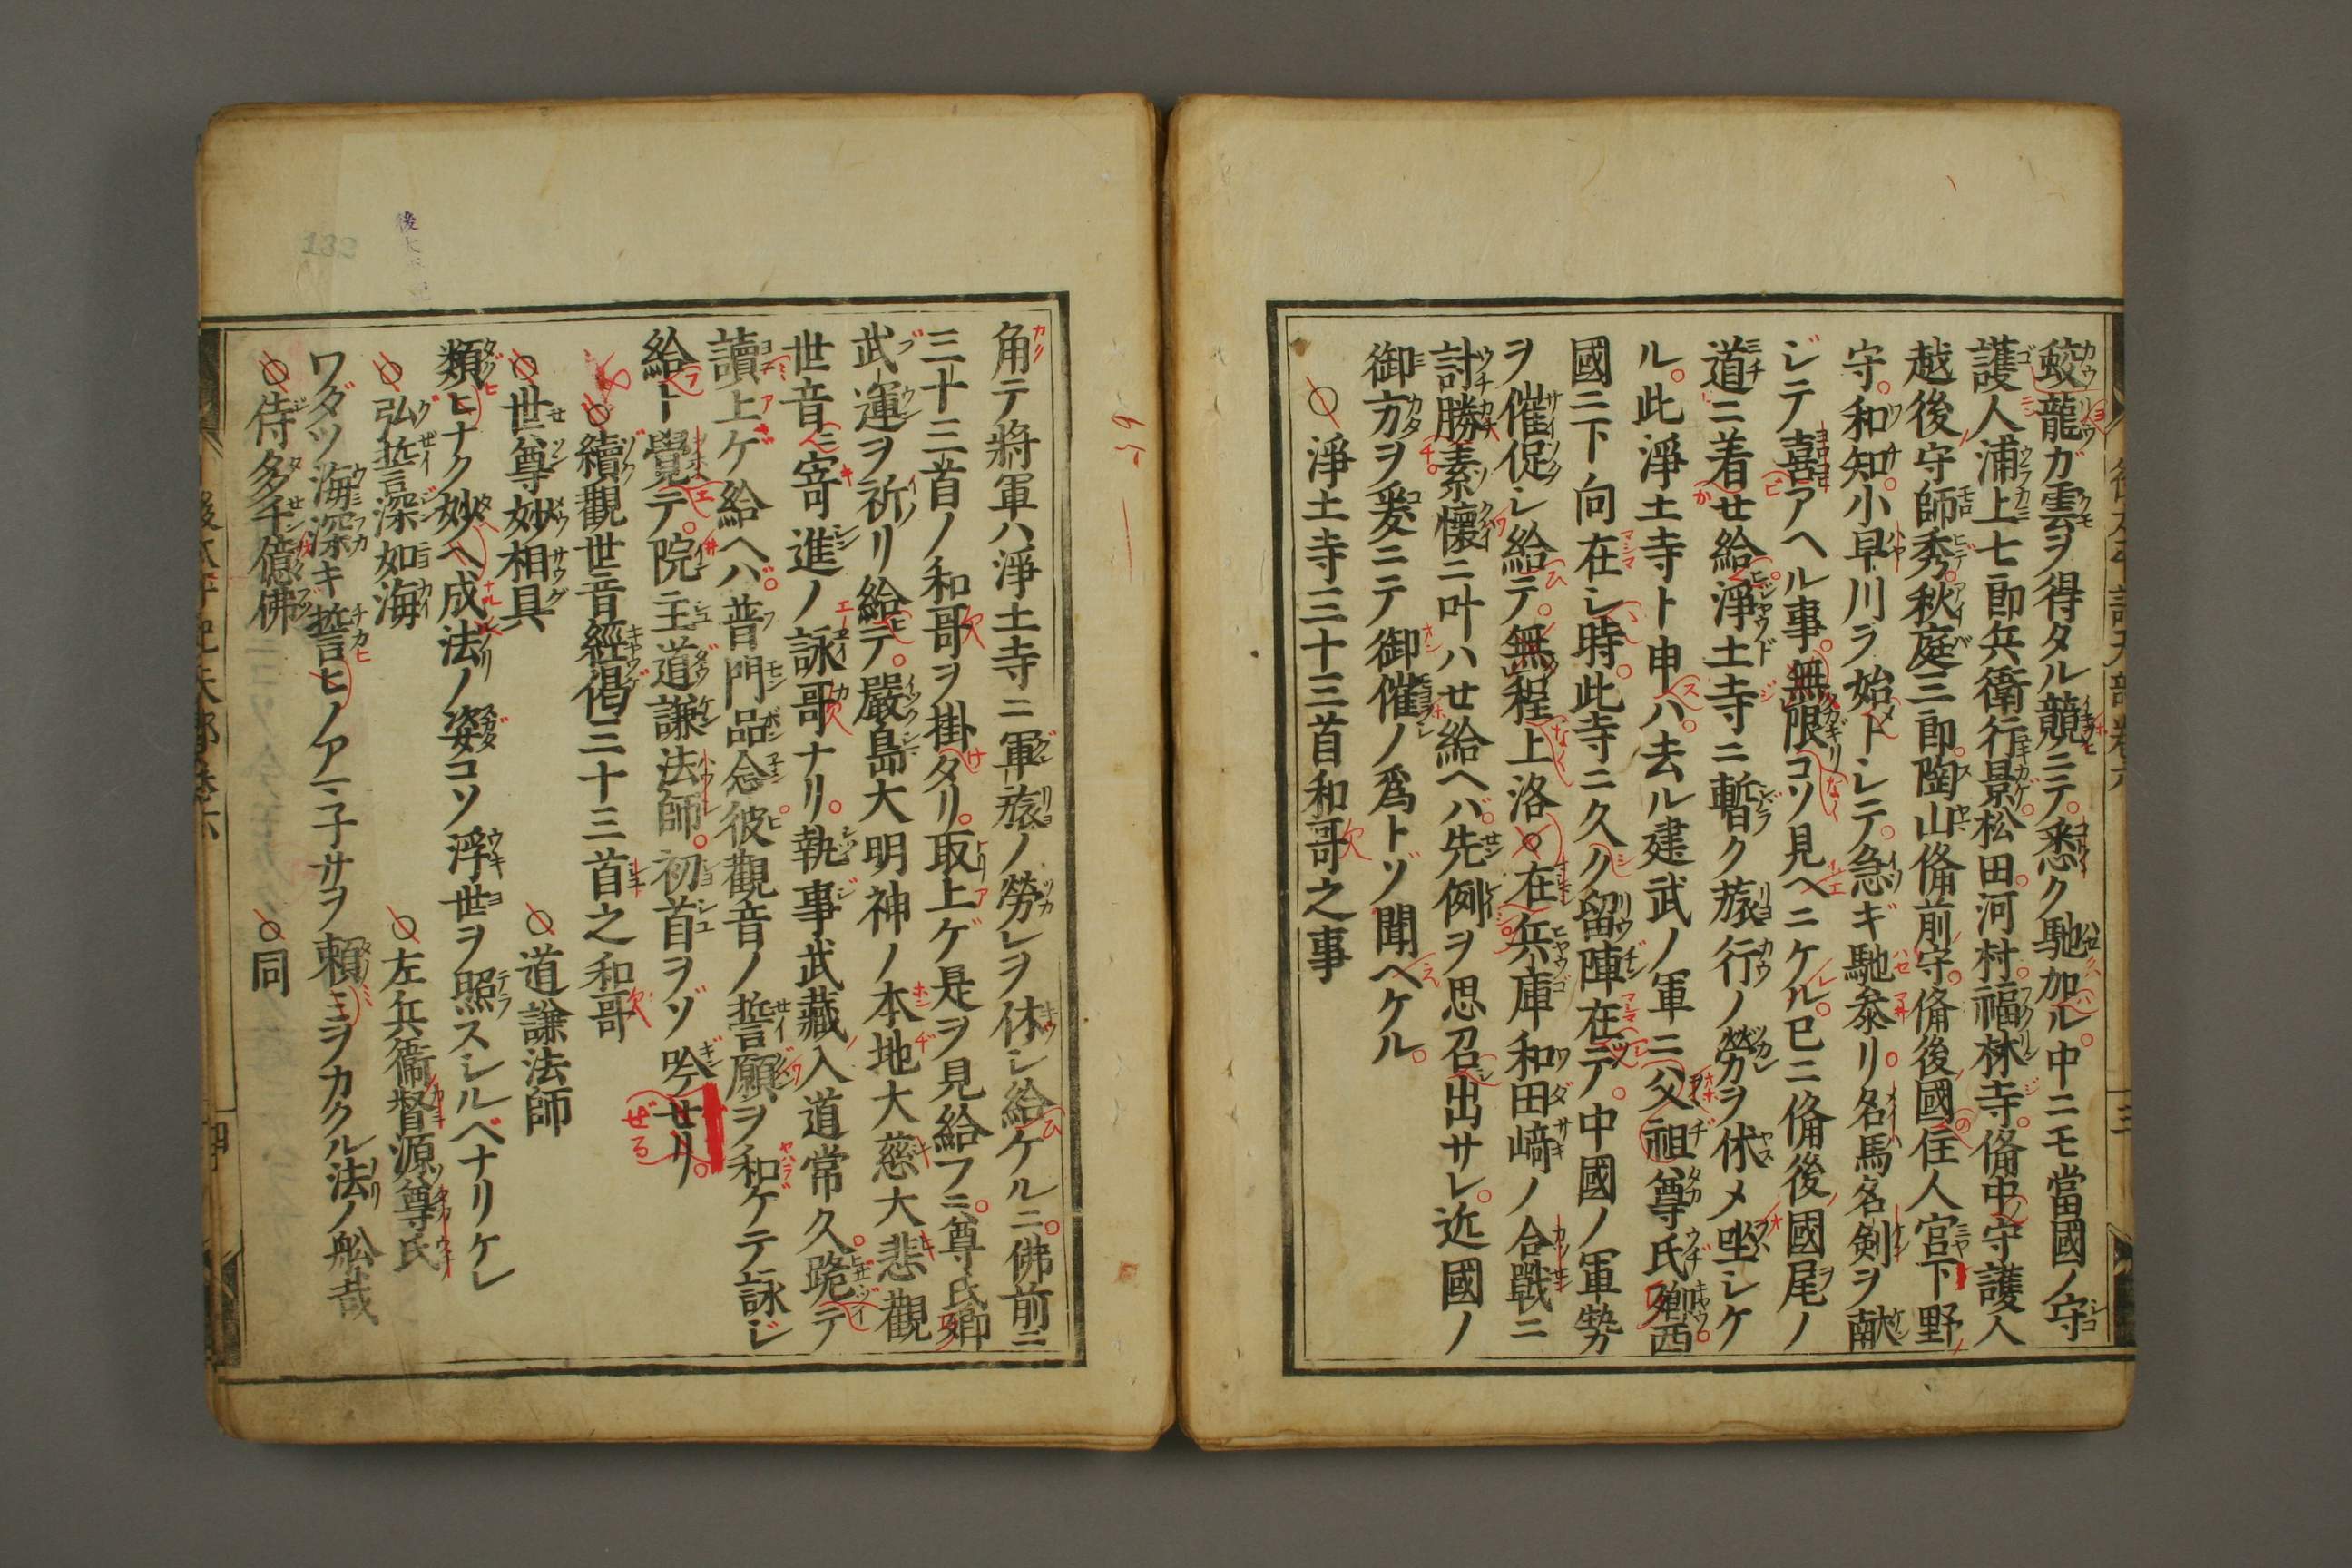 蛟龍ガ雲ヲ得タル競ニテ悉ク馳加ル中ニモ當國ノ守
護人浦上七郎兵衛行景松田河村福林寺備中守護人
越後守師秀秋庭三郎陶山備前守備後國住人宮下野
守和知小早川ラ始トシテ急ギ馳參リ名馬名剣ヲ献
ジテ喜アヘル事無限コソ見ヘニケル已ニ備後國尾ノ
道ニ着せ給淨土寺ニ暫ク旅行ノ勞ヲ休メ坐シケ
ル此淨土寺ト申ハ去ル建武ノ軍ニ父祖尊氏卿西
國ニ下向在シ時此寺ニ久ク留陣在テ中國ノ軍勢
ヲ催促シ給テ無程上洛○在兵庫和田﨑ノ合戰ニ
討勝素懷ニ叶ハせ給ヘバ先例ヲ思召出サレ近國ノ
御方ヲ爰ニテ御催ノ爲トゾ聞ヘケル
○淨土寺三十三首和哥之事
角テ將軍ハ淨土寺ニ軍旅ノ勞レヲ休シ給ケルニ佛前ニ
三十三首ノ和哥ヲ掛タリ取上ゲ是ヲ見給フニ尊氏卿
武運ヲ祈リ給テ嚴島大明神ノ本地大慈大悲觀
世音ニ寄進ノ詠哥ナリ執事武藏入道常久跪テ
讀上ゲ給ヘバ普門品念彼觀音ノ誓願ヲ和ゲテ詠ジ
給ト覺テ院主道謙法師初首ヲゾ吟せリ
○續觀世音經偈三十三首之和哥
○世尊妙相具 ○道謙法師
類ヒナク妙ヘ成法ノ姿コソ浮世ヲ照スシルベナリケレ
○弘誓深如海 ○左兵衞督源尊氏
ワダツ海深キ誓ヒノアマ子サヲ頼ミヲカクル法ノ舩哉
○侍多千億佛 ○同